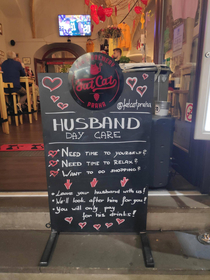 Fat Cat
PRAHA
@fatcatpraha
HUSBAND
DAY CARE
• NEED TIME TO YOURSELF?
• NEED TIME TO RELAX?
• WANT TO GO SHOPPING?
• Leave your husband with us!
• We'll look after him for you!
• You will only pay
for his drinks!